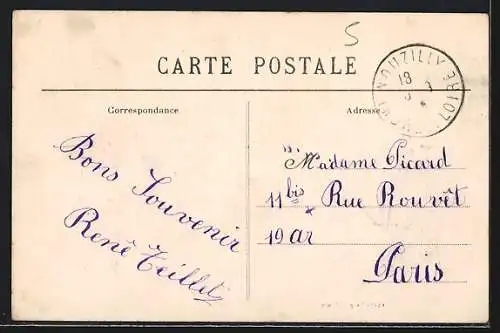 5
CARTE POSTALE
MOUZILLY
18
Correspondance
Adresse
Bons Souvenir
René Teillet
Madame Picard
11 bis Rue Rouvêt
19 ar
Paris